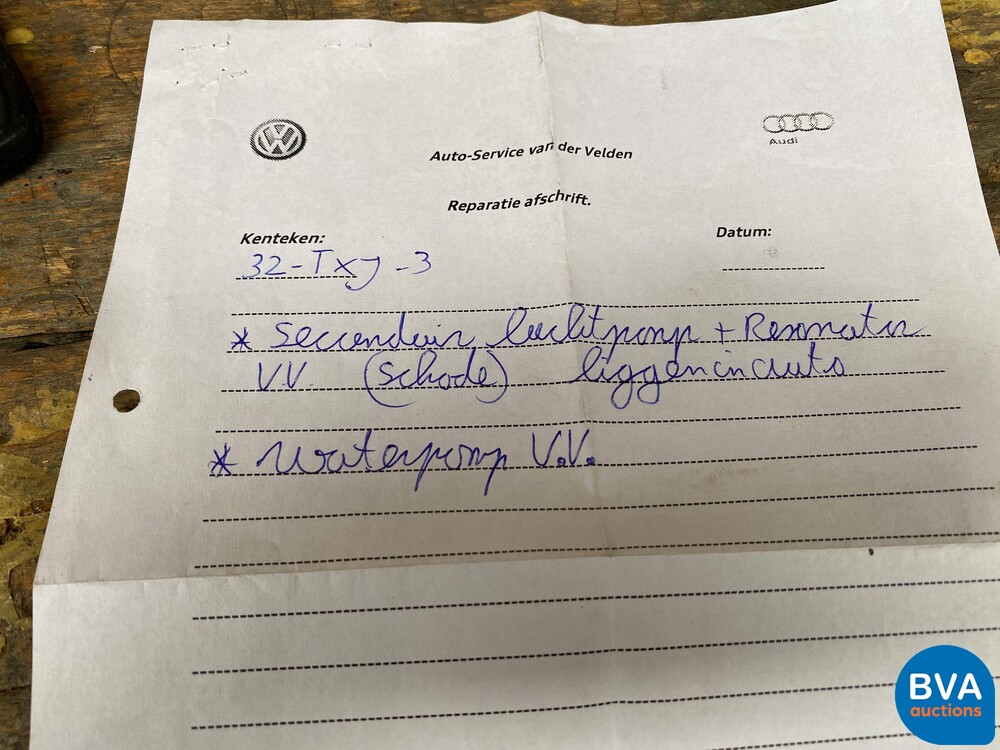 Audi
Auto-Service van der Velden
Reparatie afschrift.
Kenteken:
Datum:
32-TXJ-3
* Seccunduir luchtpomp + Resonator
VV. (schade) liggen in auto
* Waterpomp V.V.
BVA
auctions